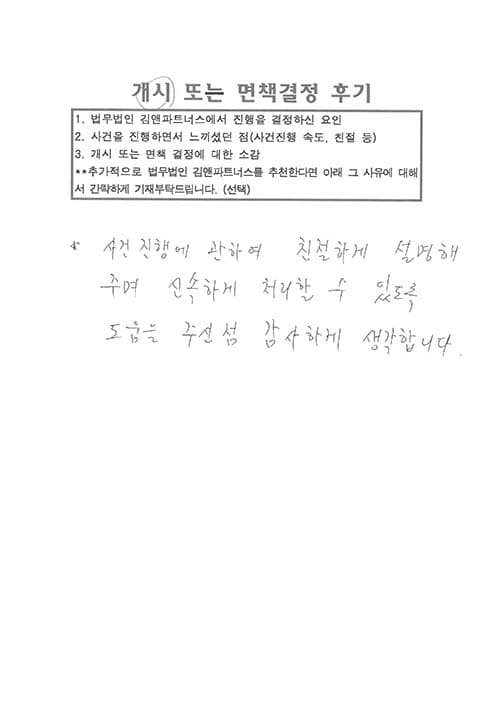 개시 또는 면책결정 후기
1. 법무법인 김앤파트너스에서 진행을 결정하신 요인
2. 사건을 진행하면서 느끼셨던 점(사건진행 속도, 친절 등)
3. 개시 또는 면책 결정에 대한 소감
**추가적으로 법무법인 김앤파트너스를 추천한다면 아래 그 사유에 대해
서 간략하게 기재부탁드립니다. (선택)
* 사건 진행에 관하여 친절하게 설명해
주며 신속하게 처리할 수 있도록
도움을 주신 점 감사하게 생각합니다.